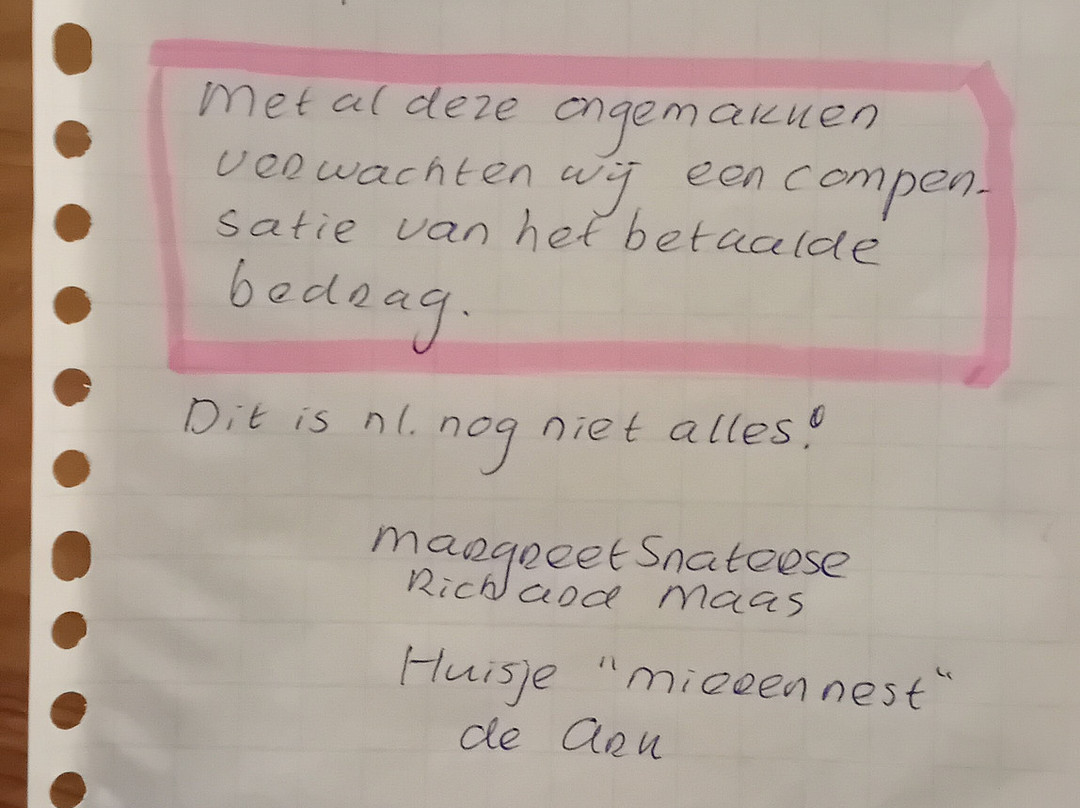 Met al deze ongemakken
verwachten wij een compen-
satie van het betaalde
bedrag.
Dit is nl. nog niet alles!
Margreet Snaterse
Richard Maas
Huisje "mierennest"
de Ark